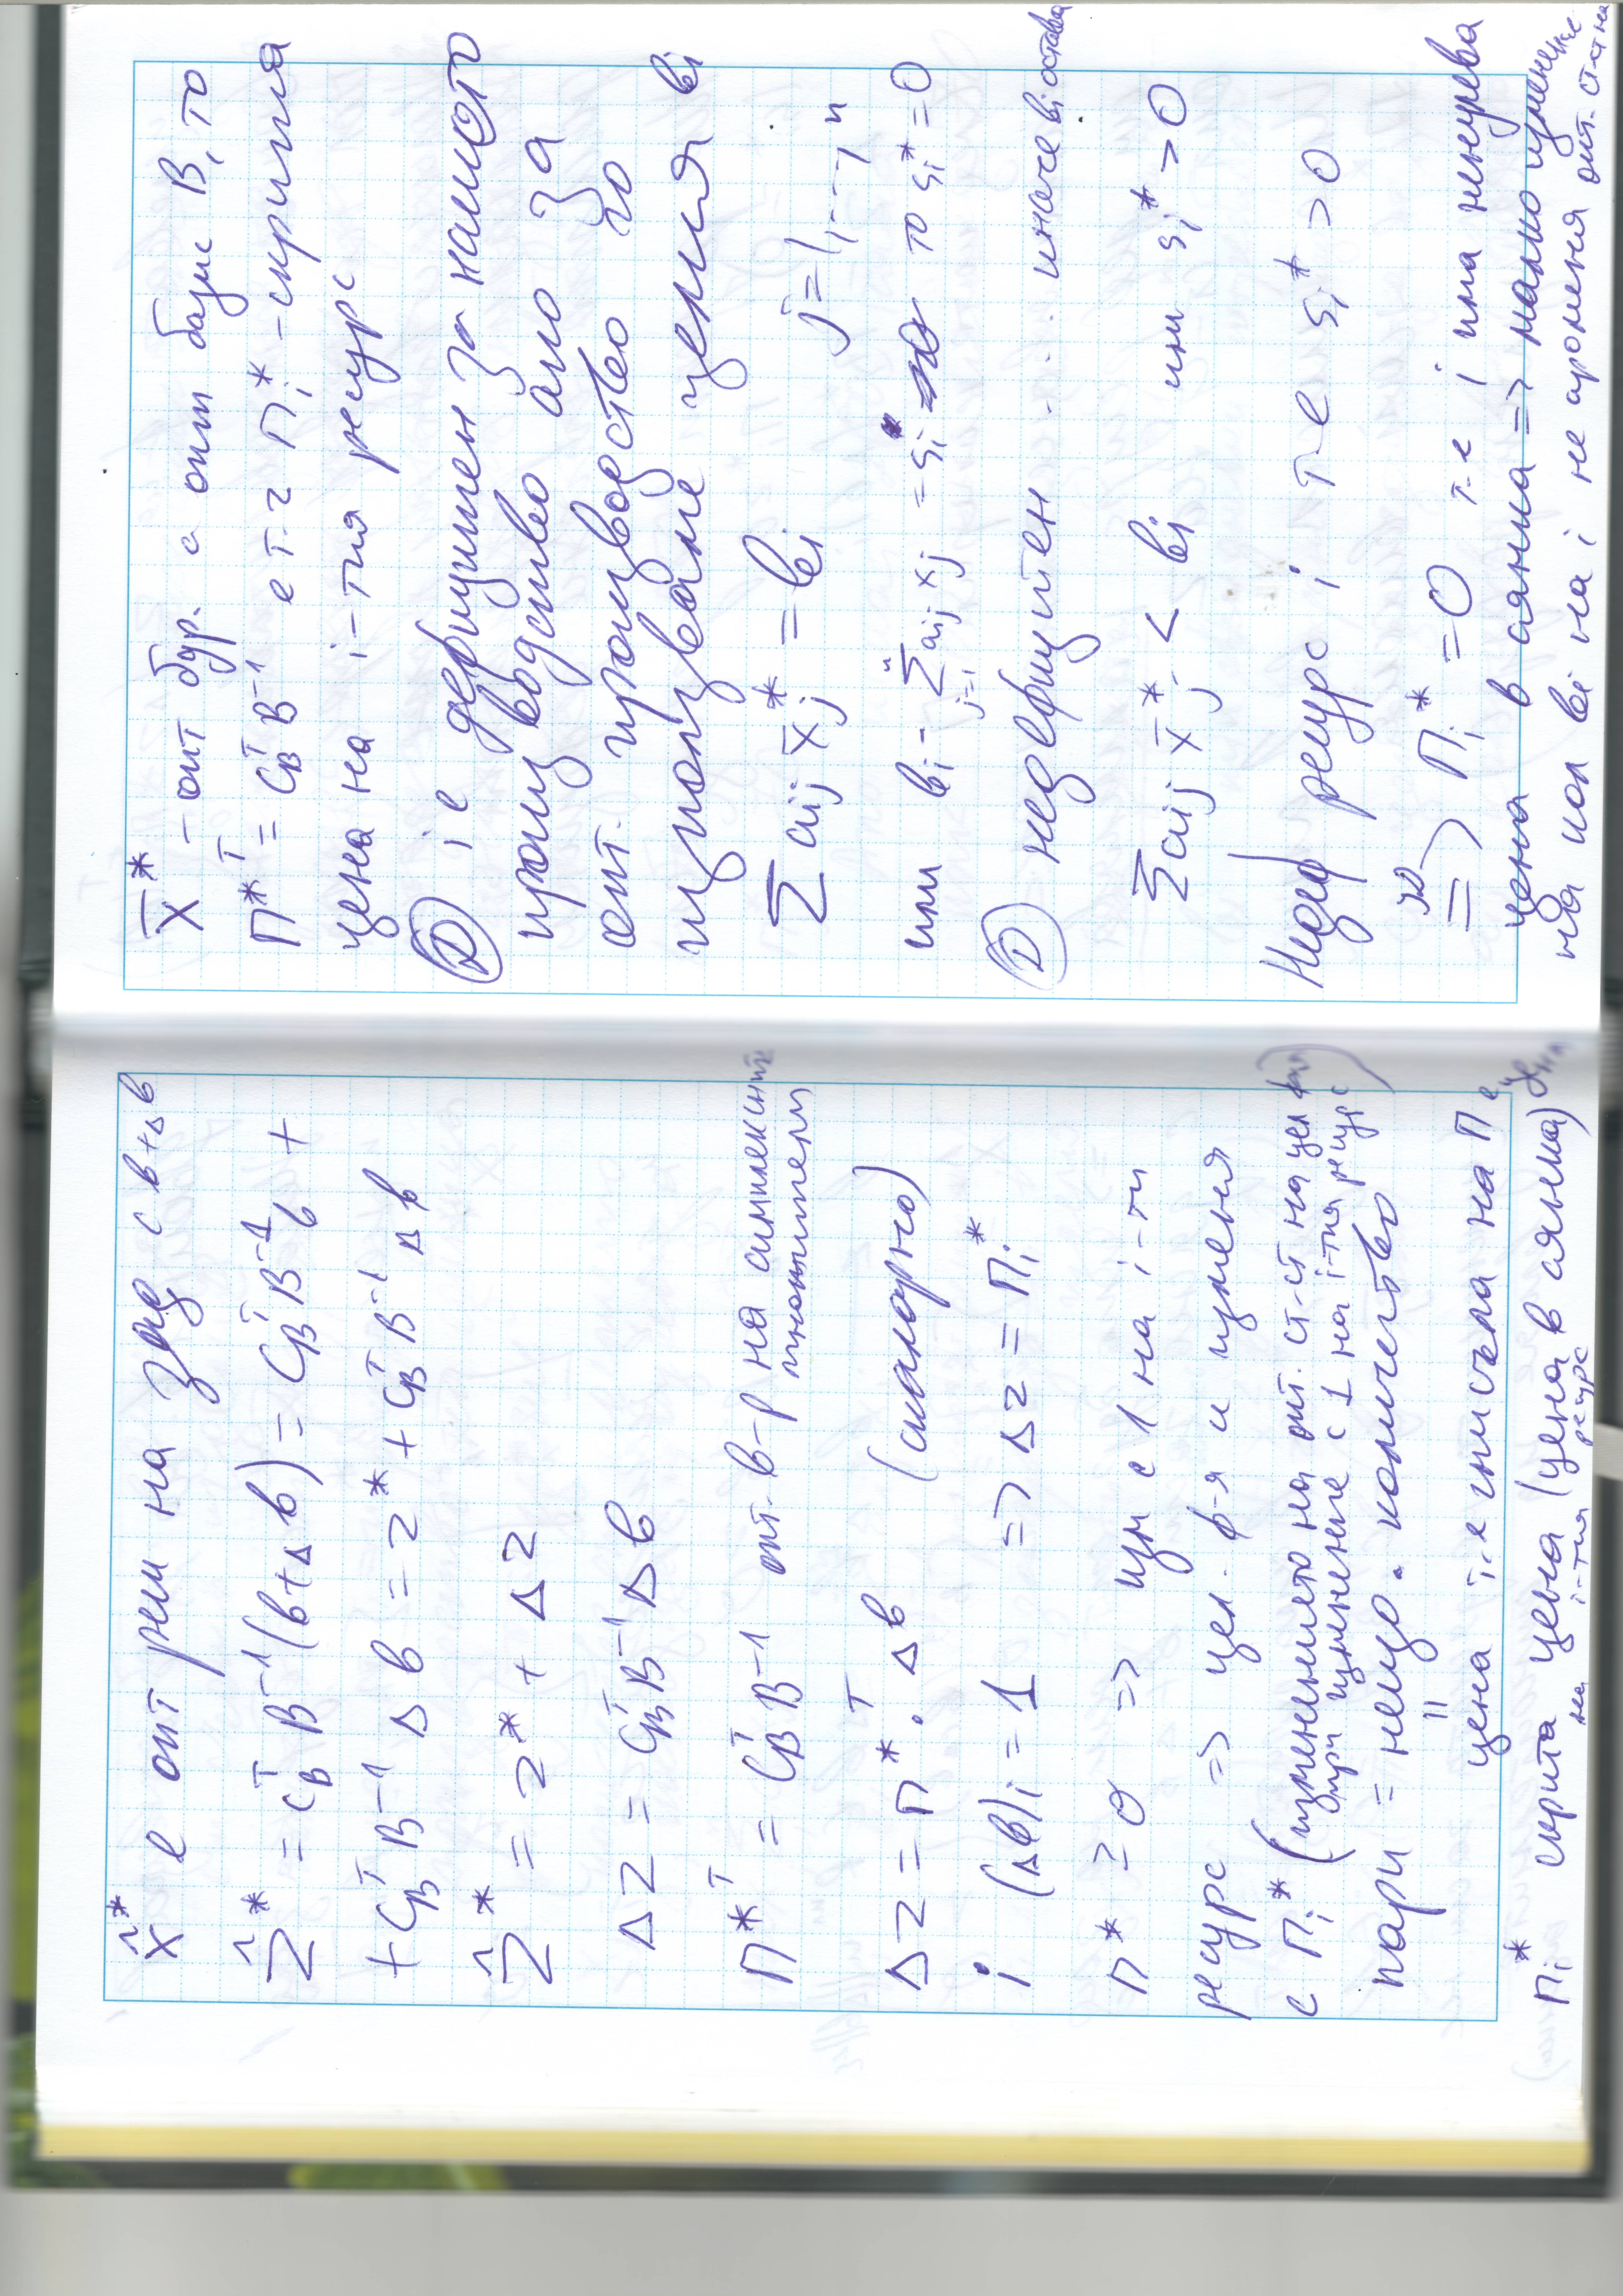 x̂* е опт реш на зад с в+Δв
ẑ* = c_B^T B^-1 (в+Δв) = c_B^T B^-1 в +
+ c_B^T B^-1 Δв = z* + c_B^T B^-1 Δв
ẑ* = z* + Δz
Δz = c_B^T B^-1 Δв
π*^T = c_B^T B^-1 опт. в-р на симплексните
множители
Δz = π*^T . Δв (скаларно)
i (Δв)i = 1 => Δz = πi*
π* ≥ 0 => изм с 1 на i-ти
ресурс => цел. ф-я и изменя
с πi* (изменението на опт. ст-ст на цел ф-я
при изменение с 1 на i-тия ресурс)
пари = нещо . количество
"
цена i-е смисъла на π е цена
πi* скрита цена (цена в сянка)
на i-тия ресурс
x̄* - опт бдр. с опт базис B, то
π*^T = c_B^T B^-1 е т.г πi* - скрития
цена на i-тия ресурс
(D) i е дефицитен за намото
производство ако за
опт. производство го
използваме целия вi
Σ aij x̄j* = вi j=1,...,n
или вi - Σ_{j=1}^n aij xj = si* то si* = 0
(D) недефицитен ... иначе вi остава
Σ aij x̄j* < вi или si* > 0
Недеф ресурс i т-е si* > 0
=> πi* = 0 т-е i има нулева
цена в сянка => малко изменение
на кол вi на i не променя опт. ст-ст на